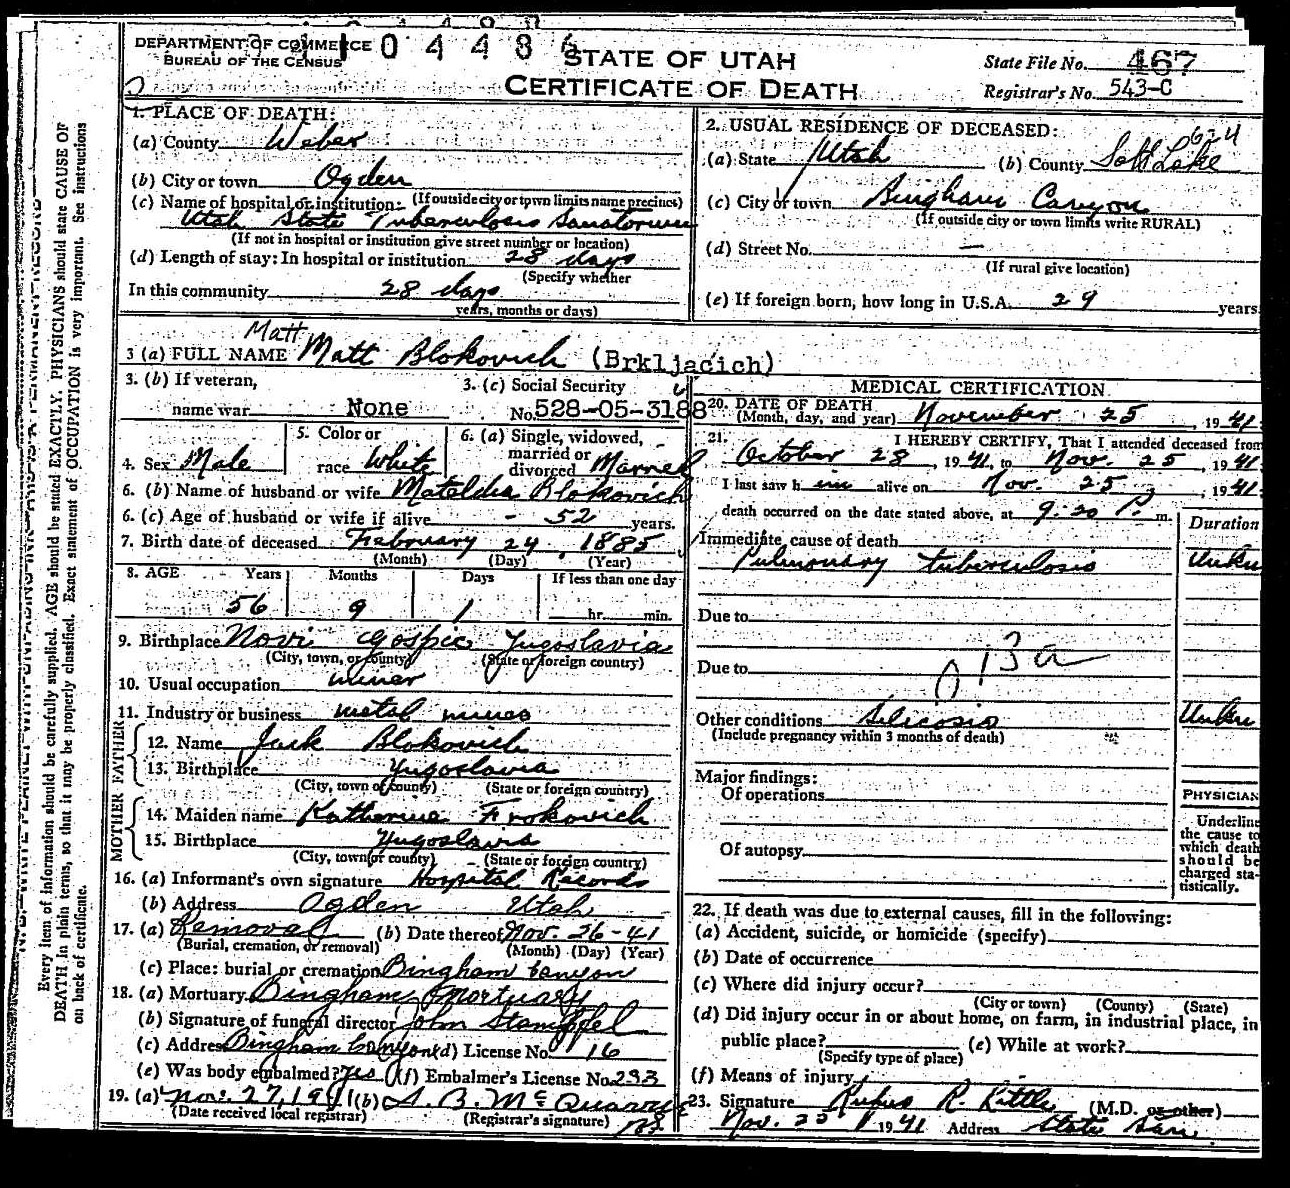 DEPARTMENT OF COMMERCE
BUREAU OF THE CENSUS
0 4 4 8
STATE OF UTAH
CERTIFICATE OF DEATH
State File No. 467
Registrar's No. 543-C
1. PLACE OF DEATH:
(a) County Weber
(b) City or town Ogden
(If outside city or town limits name precinct)
(c) Name of hospital or institution:
Utah State Tuberculosis Sanatorium
(If not in hospital or institution give street number or location)
(d) Length of stay: In hospital or institution 28 days
(Specify whether
In this community 28 days
years, months or days)
2. USUAL RESIDENCE OF DECEASED:
(a) State Utah (b) County Salt Lake
(c) City or town Bingham Canyon
(If outside city or town limits write RURAL)
(d) Street No. —
(If rural give location)
(e) If foreign born, how long in U.S.A. 29 years
Matt
3 (a) FULL NAME Matt Blokovich (Brkljacich)
3. (b) If veteran,
name war None
3. (c) Social Security
No. 528-05-3188
4. Sex Male
5. Color or
race White
6. (a) Single, widowed,
married or
divorced Married
6. (b) Name of husband or wife Matelda Blokovich
6. (c) Age of husband or wife if alive - 52 years.
7. Birth date of deceased February 24, 1885
(Month) (Day) (Year)
8. AGE Years Months Days If less than one day
56 9 1 hr. min.
9. Birthplace Novi Gospic Yugoslavia
(City, town, or county) (State or foreign country)
10. Usual occupation miner
11. Industry or business metal mines
FATHER
12. Name Jack Blokovich
13. Birthplace Yugoslavia
(City, town or county) (State or foreign country)
MOTHER
14. Maiden name Katherine Frokovich
15. Birthplace Yugoslavia
(City, town or county) (State or foreign country)
16. (a) Informant's own signature Hospital Records
(b) Address Ogden Utah
17. (a) Removal (b) Date thereof Nov. 26-41
(Burial, cremation, or removal) (Month) (Day) (Year)
(c) Place: burial or cremation Bingham Canyon
18. (a) Mortuary Bingham Mortuary
(b) Signature of funeral director John Stampfel
(c) Address Bingham Canyon (d) License No. 16
(e) Was body embalmed? Yes (f) Embalmer's License No. 233
19. (a) Nov. 27, 1941 (b)
(Date received local registrar) (Registrar's signature)
MEDICAL CERTIFICATION
20. DATE OF DEATH
(Month, day, and year) November 25, 1941
21. I HEREBY CERTIFY, That I attended deceased from
October 28, 1941, to Nov. 25, 1941
I last saw him alive on Nov. 25, 1941
death occurred on the date stated above, at 9:20 P. m.
Duration
Immediate cause of death
Pulmonary tuberculosis Unkn
Due to
Due to
13a
Other conditions Silicosis Unkn
(Include pregnancy within 3 months of death)
Major findings:
Of operations
Of autopsy
PHYSICIAN
Underline
the cause to
which death
should be
charged sta-
tistically.
22. If death was due to external causes, fill in the following:
(a) Accident, suicide, or homicide (specify)
(b) Date of occurrence
(c) Where did injury occur?
(City or town) (County) (State)
(d) Did injury occur in or about home, on farm, in industrial place, in
public place?
(Specify type of place)
(e) While at work?
(f) Means of injury
23. Signature Rufus R. Little (M.D. or other)
Nov. 25 1941 Address State San.
Every item of information should be carefully supplied. AGE should be stated EXACTLY. PHYSICIANS should state CAUSE OF
DEATH in plain terms, so that it may be properly classified. Exact statement of OCCUPATION is very important. See instructions
on back of certificate.